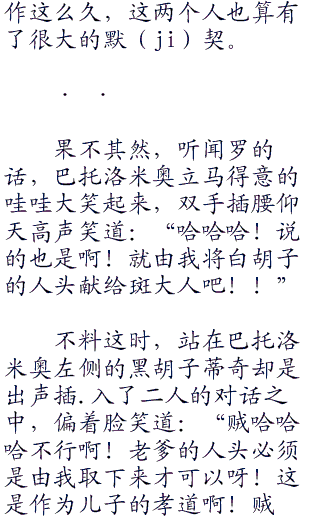 作这么久，这两个人也算有
了很大的默（ji）契。
．．
果不其然，听闻罗的
话，巴托洛米奥立马得意的
哇哇大笑起来，双手插腰仰
天高声笑道：“哈哈哈！说
的也是啊！就由我将白胡子
的人头献给斑大人吧！！”
不料这时，站在巴托洛
米奥左侧的黑胡子蒂奇却是
出声插.入了二人的对话之
中，偏着脸笑道：“贼哈哈
哈不行啊！老爹的人头必须
是由我取下来才可以呀！这
是作为儿子的孝道啊！贼